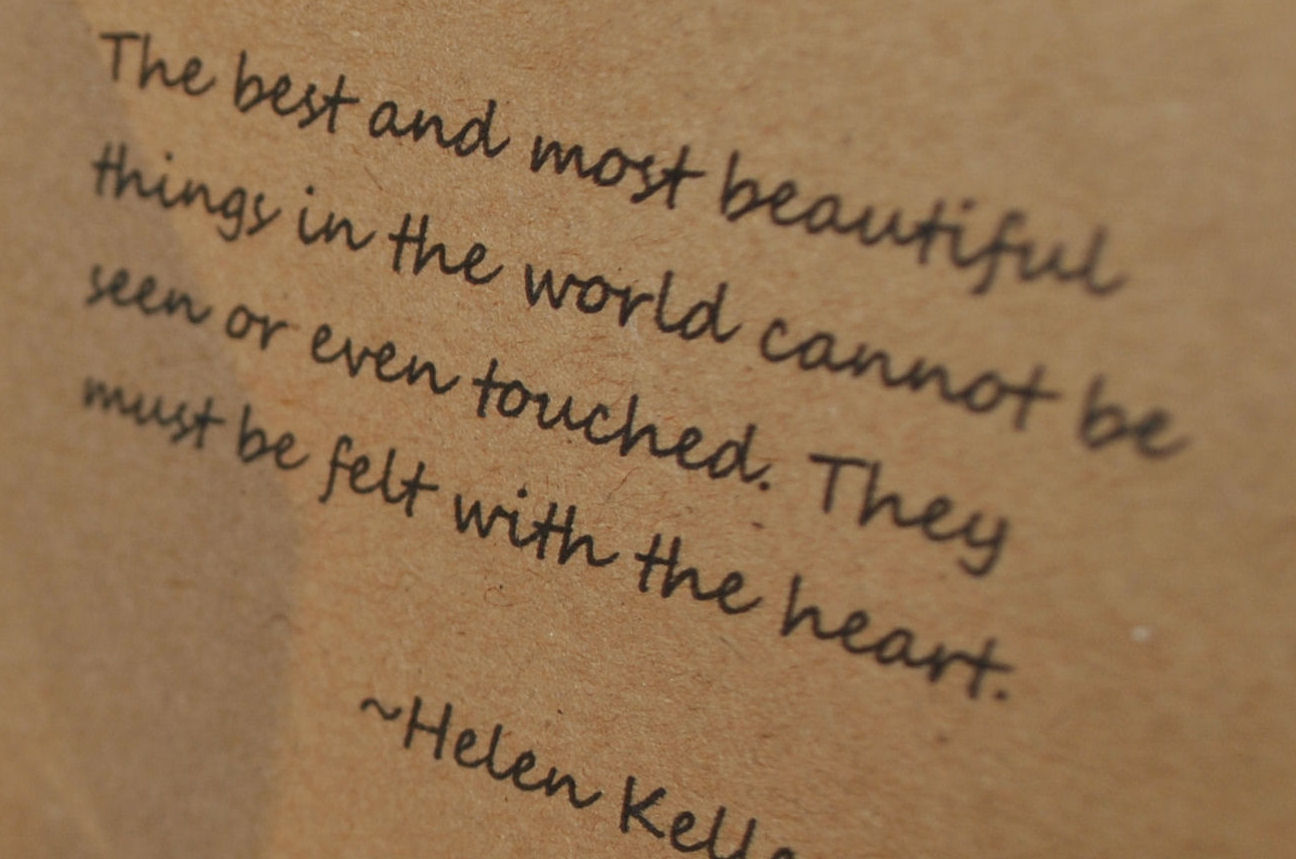 The best and most beautiful
things in the world cannot be
seen or even touched. They
must be felt with the heart.
~Helen Kelle